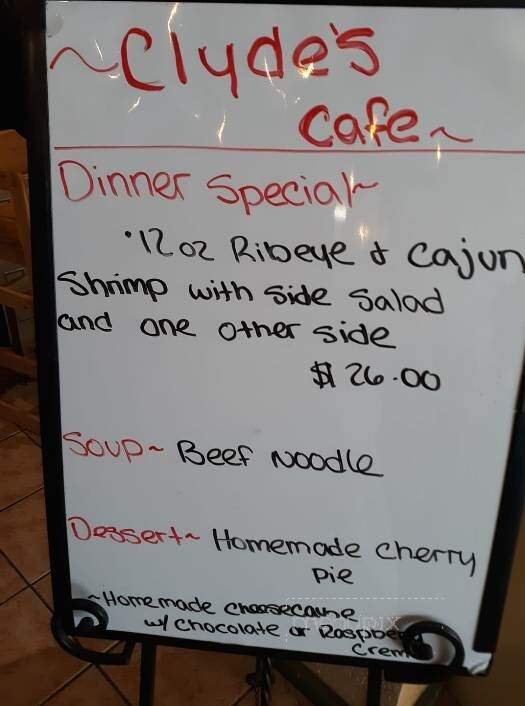 ~Clyde's
Cafe~
Dinner Special~
·12oz Ribeye & Cajun
Shrimp with side salad
and one other side
$26.00
Soup~ Beef Noodle
Dessert~ Homemade cherry
pie
~Homemade
w/ Chocolate or